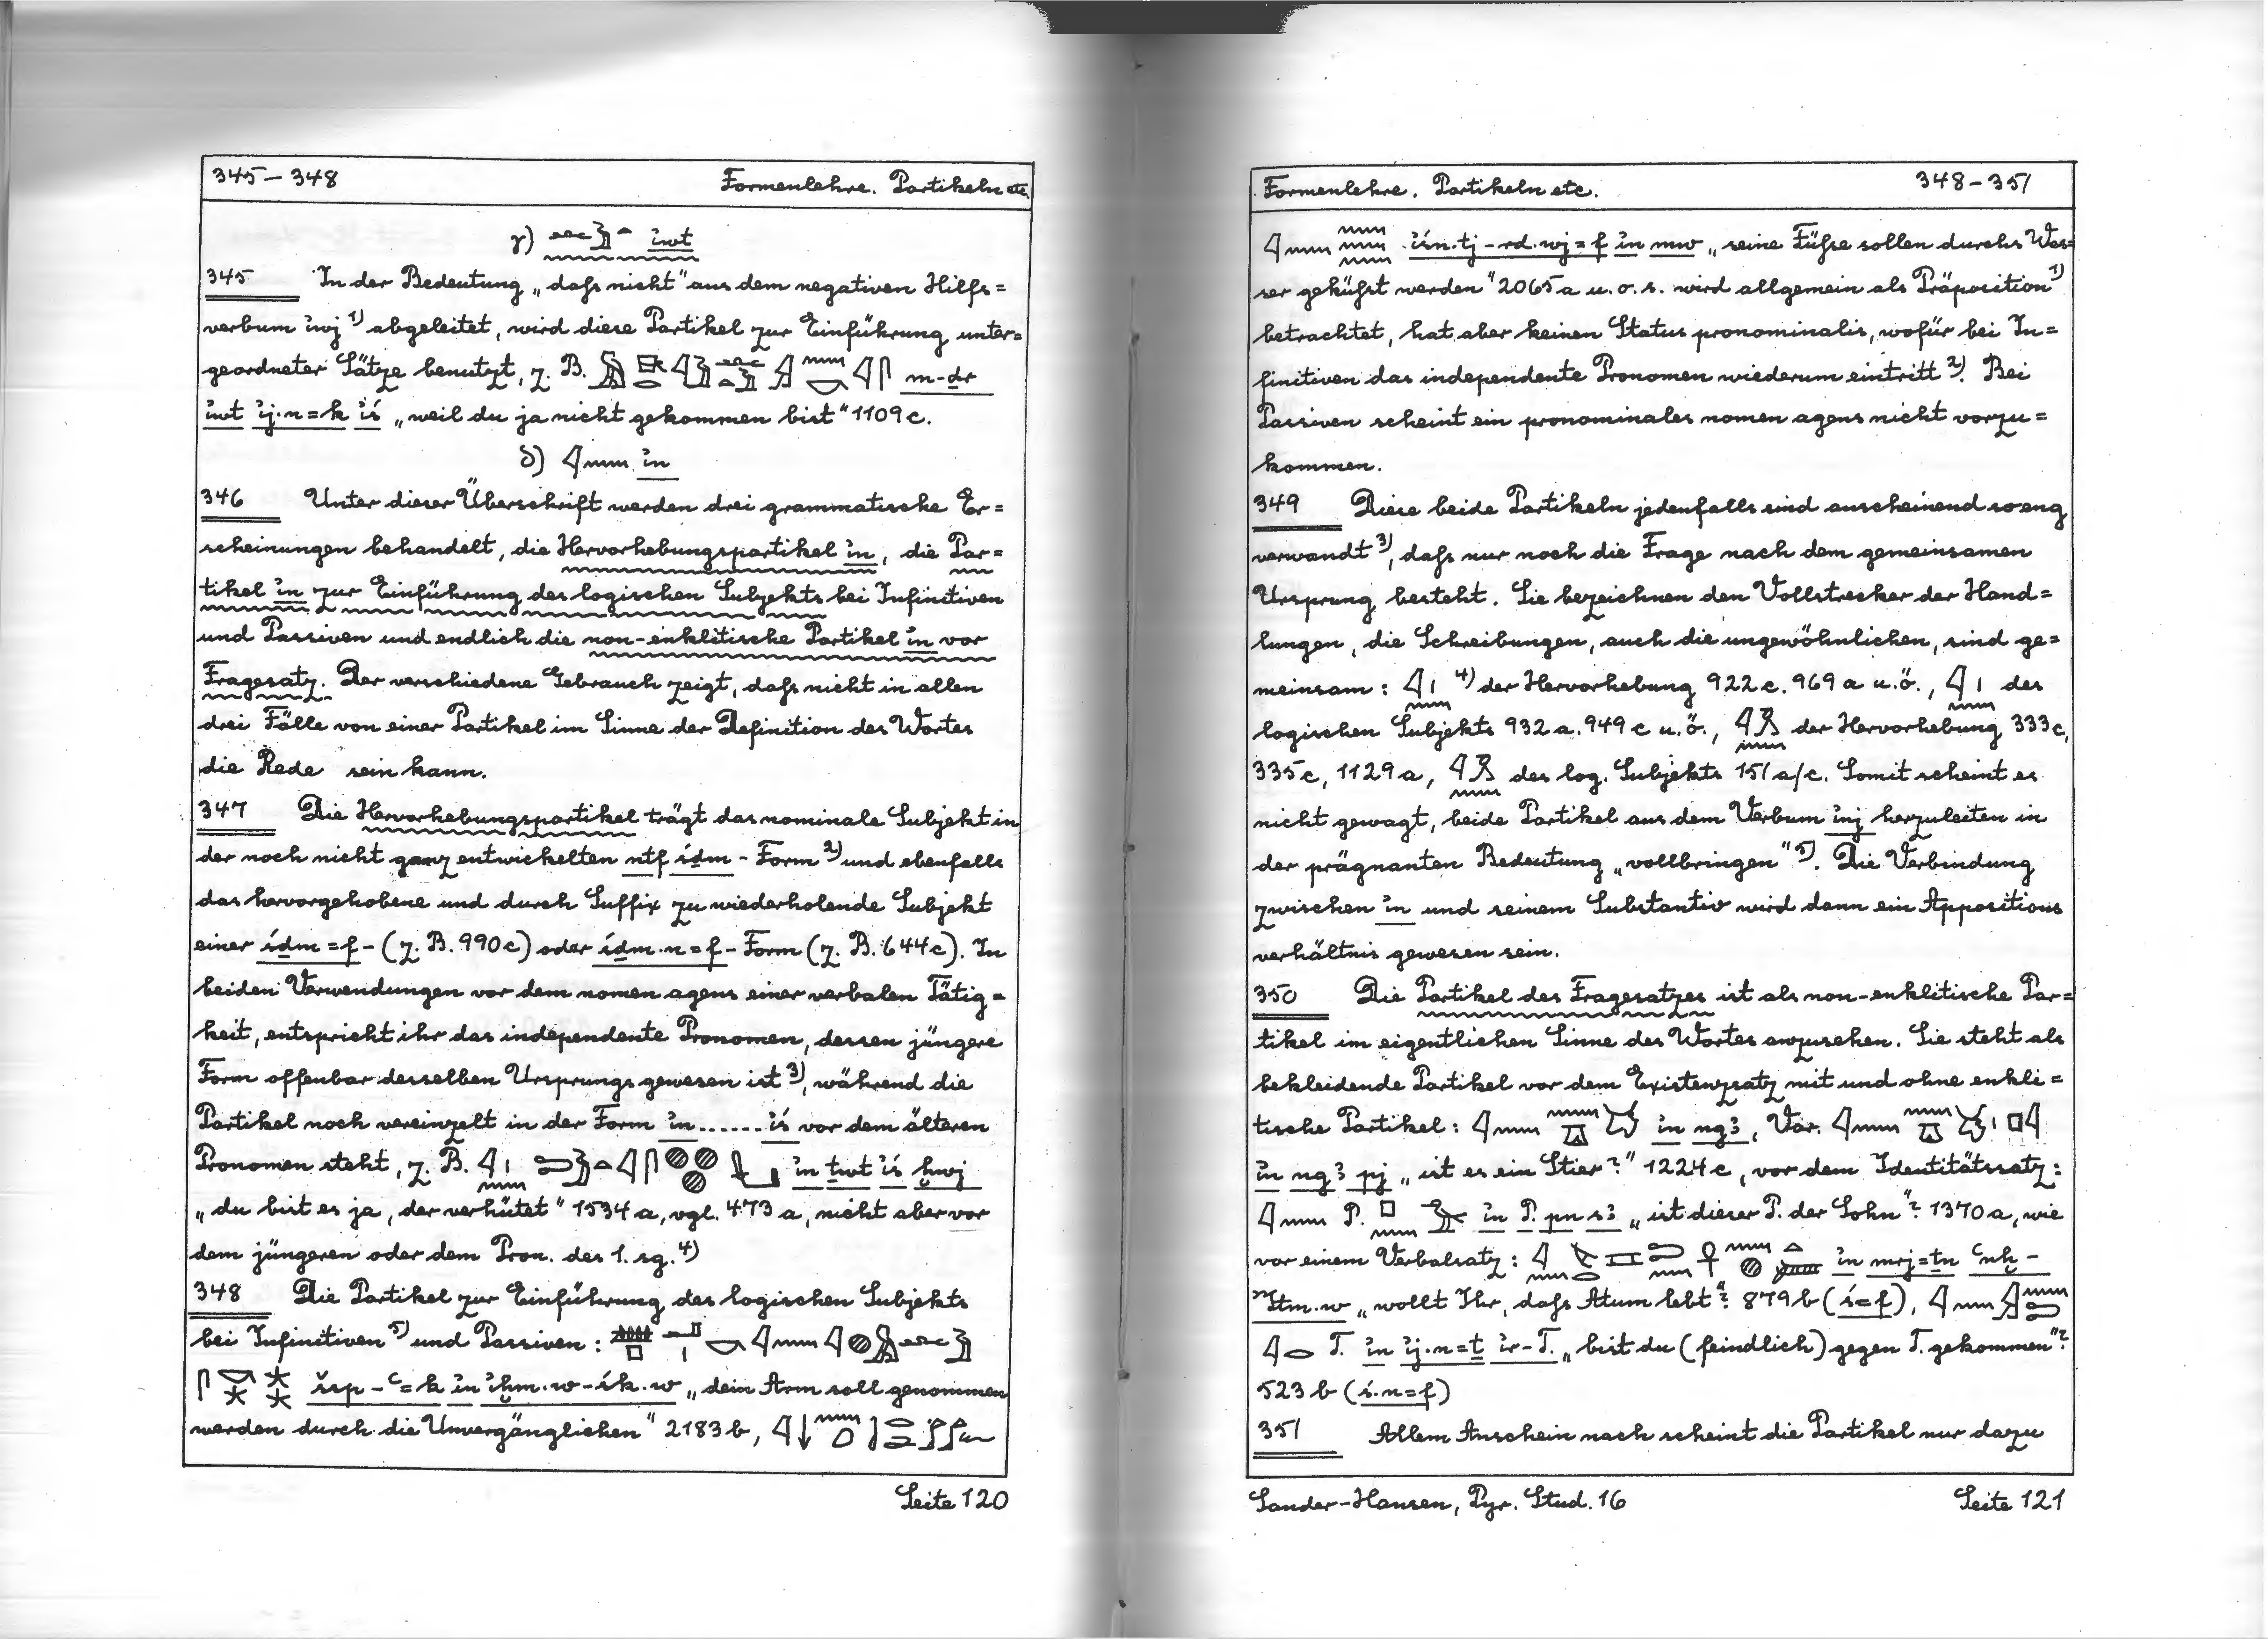 345 – 348 Formenlehre. Partikeln etc.
γ) i҆wt
345 In der Bedeutung „daß nicht" aus dem negativen Hilfs=
verbum i҆wj 1) abgeleitet, wird diese Partikel zur Einführung unter=
geordneter Sätze benutzt, z. B. m-dr
i҆wt i҆j·n=k i҆ś „weil du ja nicht gekommen bist" 1109c.
δ) 𓇋𓈖 i҆n
346 Unter dieser Überschrift werden drei grammatische Er=
scheinungen behandelt, die Hervorhebungspartikel i҆n, die Par=
tikel i҆n zur Einführung des logischen Subjekts bei Infinitiven
und Passiven und endlich die non-enklitische Partikel i҆n vor
Fragesatz. Der verschiedene Gebrauch zeigt, daß nicht in allen
drei Fälle von einer Partikel im Sinne der Definition des Wortes
die Rede sein kann.
347 Die Hervorhebungspartikel trägt das nominale Subjekt in
der noch nicht ganz entwickelten ntf śḏm - Form 2) und ebenfalls
das hervorgehobene und durch Suffix zu wiederholende Subjekt
einer śḏm=f – (z. B. 990c) oder śḏm·n=f – Form (z. B. 644c). In
beiden Verwendungen vor dem nomen agens einer verbalen Tätig=
keit, entspricht ihr das independente Pronomen, dessen jüngere
Form offenbar desselben Ursprungs gewesen ist 3), während die
Partikel noch vereinzelt in der Form i҆n ...... i҆ś vor dem älteren
Pronomen steht, z. B. i҆n ṯwt i҆ś ḫwj
„du bist es ja, der verhütet" 1534a, vgl. 473a, nicht aber vor
dem jüngeren oder dem Pron. des 1. sg. 4)
348 Die Partikel zur Einführung des logischen Subjekts
bei Infinitiven 5) und Passiven :
šsp – ꜥ=k i҆n i҆ḫm·w-śk·w „dein Arm soll genommen
werden durch die Unvergänglichen" 2183b,
Seite 120
Formenlehre. Partikeln etc. 348 – 351
i҆śn·tj – rd·wj=f i҆n mw „seine Füße sollen durchs Was=
ser geküßt werden" 2065a u. o. s. wird allgemein als Präposition 1)
betrachtet, hat aber keinen Status pronominalis, wofür bei In=
finitiven das independente Pronomen wiederum eintritt 2). Bei
Passiven scheint ein pronominales nomen agens nicht vorzu=
kommen.
349 Diese beide Partikeln jedenfalls sind anscheinend so eng
verwandt 3), daß nur noch die Frage nach dem gemeinsamen
Ursprung besteht. Sie bezeichnen den Vollstrecker der Hand=
lungen, die Schreibungen, auch die ungewöhnlichen, sind ge=
meinsam : 4) der Hervorhebung 922c. 969a u.ö., des
logischen Subjekts 932a. 949c u.ö., der Hervorhebung 333c,
335c, 1129a, des log. Subjekts 151a/c. Somit scheint es
nicht gewagt, beide Partikel aus dem Verbum i҆nj herzuleiten in
der prägnanten Bedeutung „vollbringen" 5). Die Verbindung
zwischen i҆n und seinem Substantiv wird dann ein Appositions
verhältnis gewesen sein.
350 Die Partikel des Fragesatzes ist als non-enklitische Par=
tikel im eigentlichen Sinne des Wortes anzusehen. Sie steht als
bekleidende Partikel vor dem Existenzsatz mit und ohne enkli=
tische Partikel : i҆n ngꜣ, Var.
i҆n ngꜣ pj „ist es ein Stier?" 1224c, vor dem Identitätssatz :
P. i҆n P. pn sꜣ „ist dieser P. der Sohn"? 1370a, wie
vor einem Verbalsatz : i҆n mrj=ṯn ꜥnḫ –
ꜣItm·w „wollt Ihr, daß Atum lebt"? 879b (ś=f),
T. i҆n i҆j·n=ṯ i҆r-T. „bist du (feindlich) gegen T. gekommen"?
523b (ś·n=f)
351 Allem Anschein nach scheint die Partikel nur dazu
Sander-Hansen, Pyr. Stud. 16 Seite 121